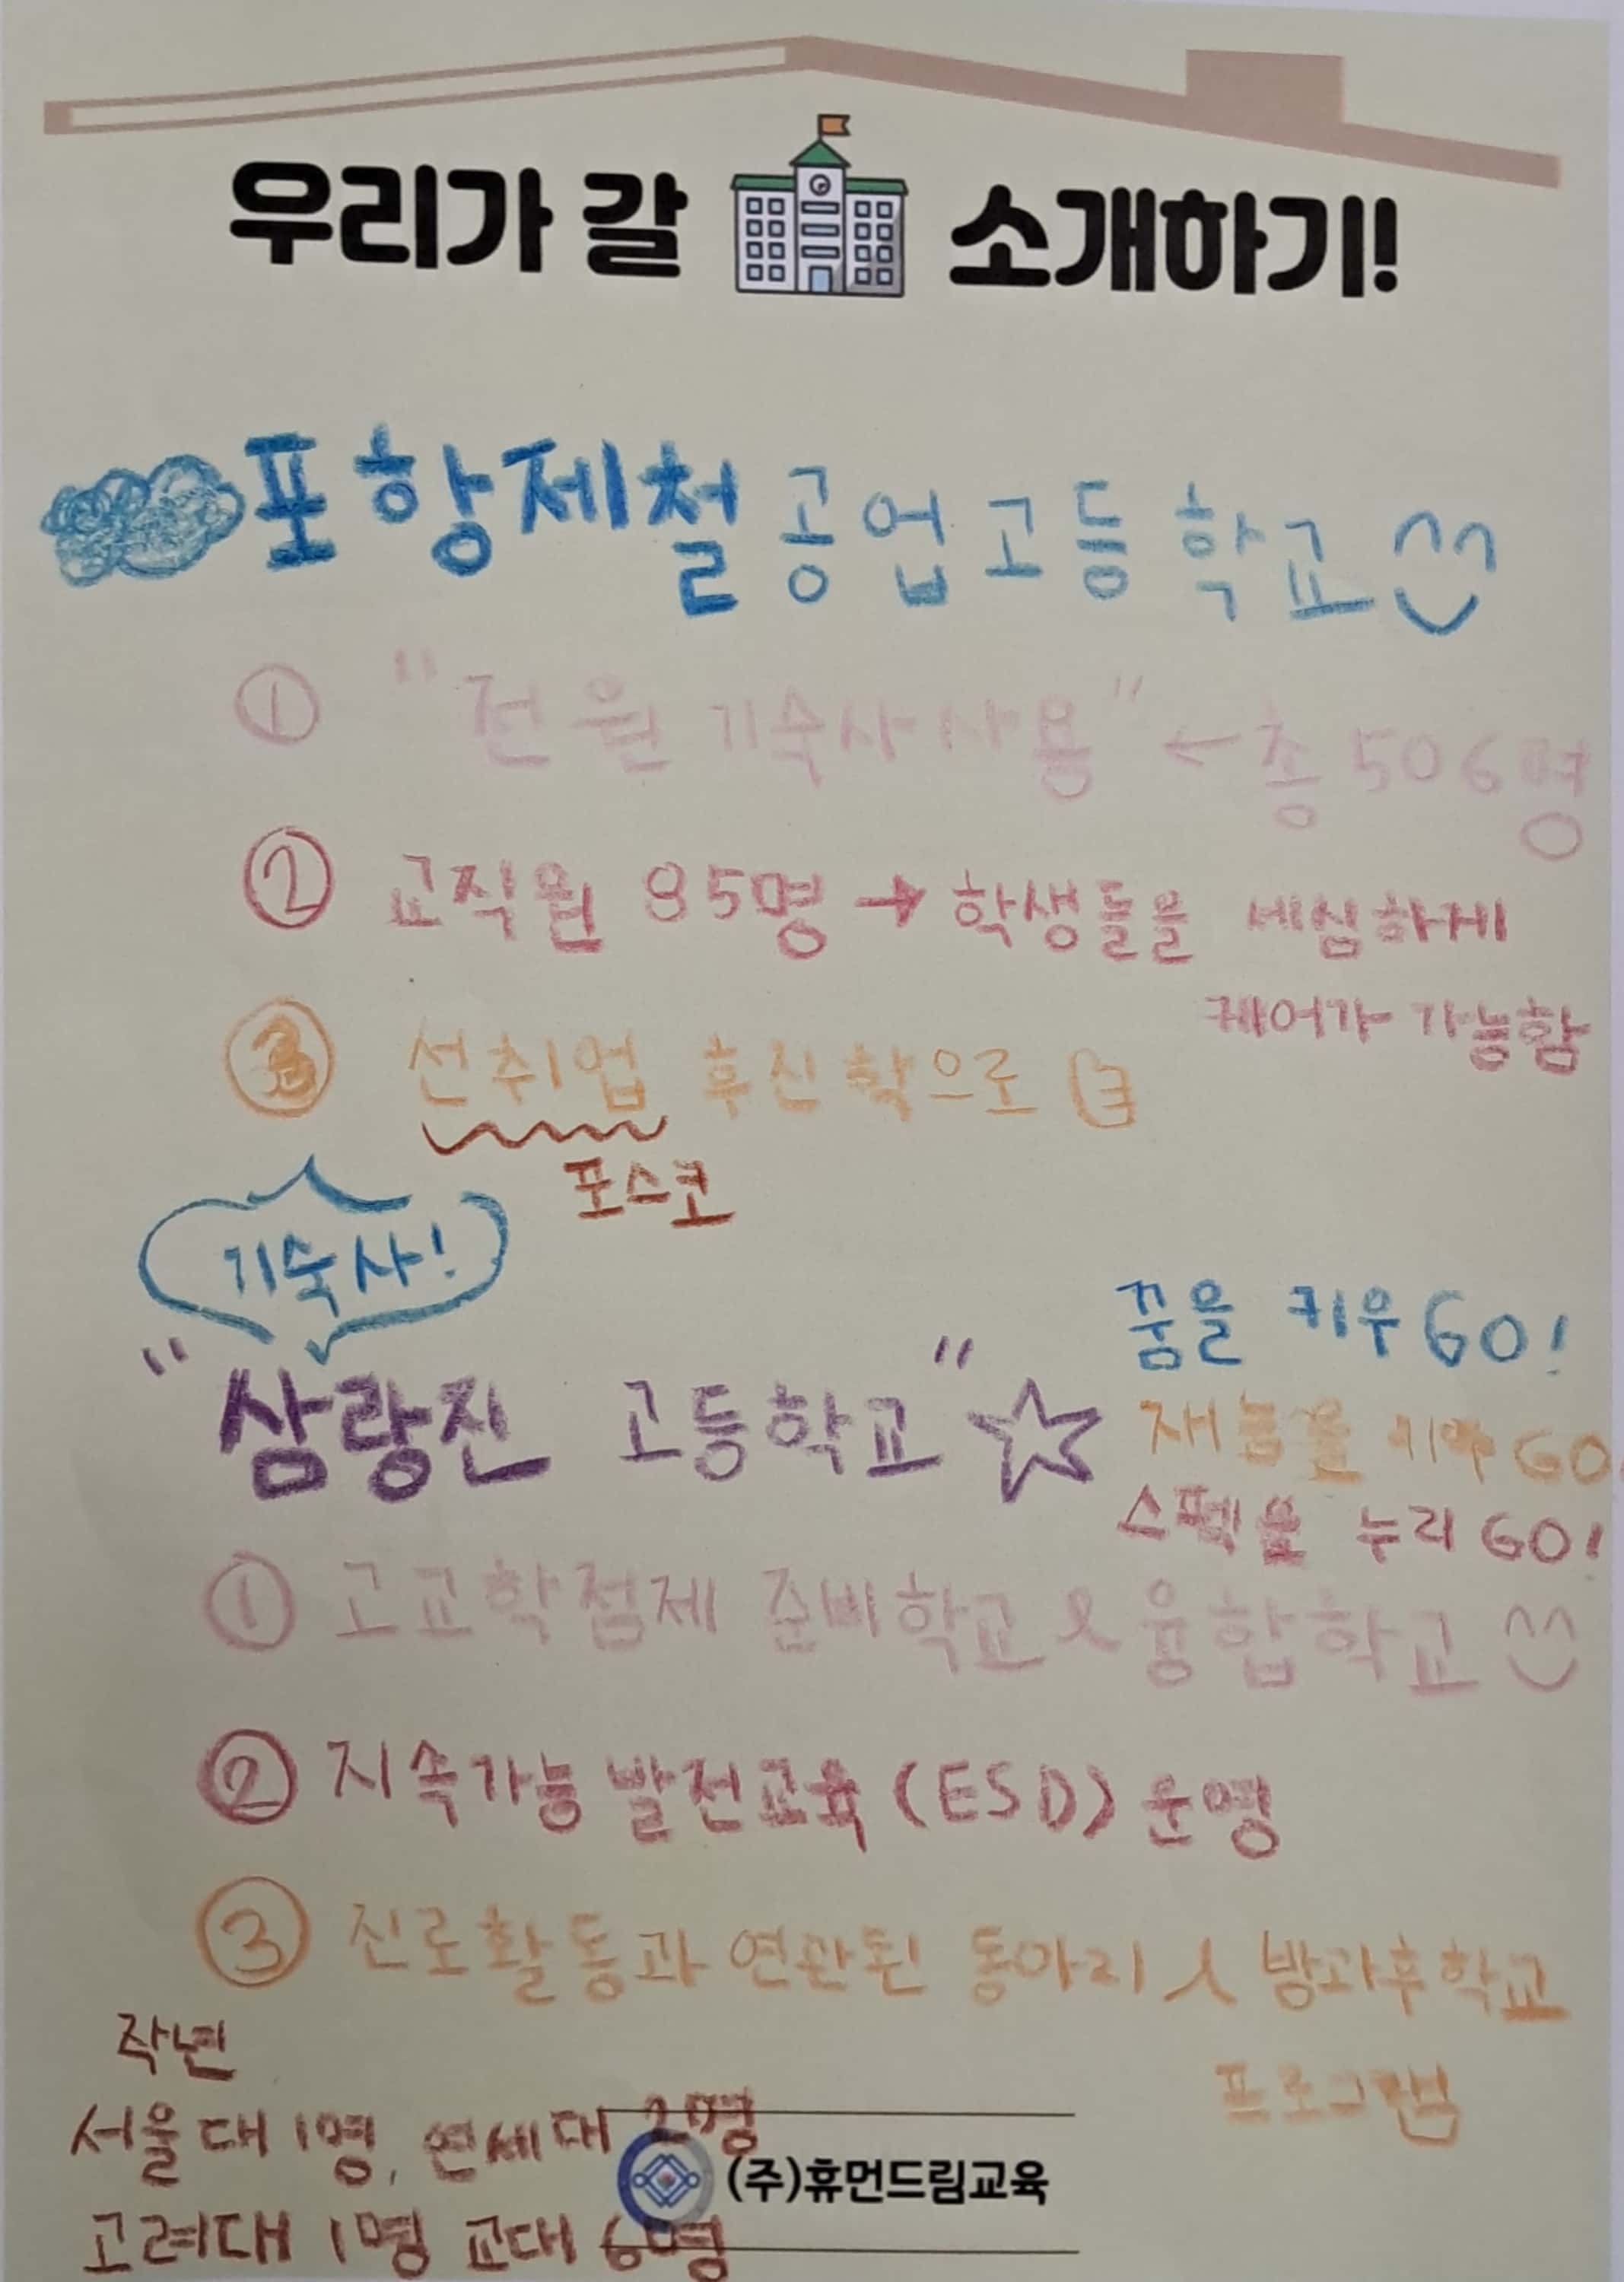 우리가 갈 소개하기!
포항제철공업고등학교
① "전원 기숙사 사용" ← 총 506명
② 교직원 85명 → 학생들을 세심하게
케어가 가능함
③ 선취업 후진학으로
포스코
기숙사!
꿈을 키우GO!
"삼랑진 고등학교" ☆
재능을 키우GO
스펙을 누리GO!
① 고교학점제 준비학교 & 융합학교
② 지속가능 발전교육 (ESD) 운영
③ 진로활동과 연관된 동아리 & 방과후학교
프로그램
작년
서울대 1명, 연세대 2명
(주)휴먼드림교육
고려대 1명 교대 6명